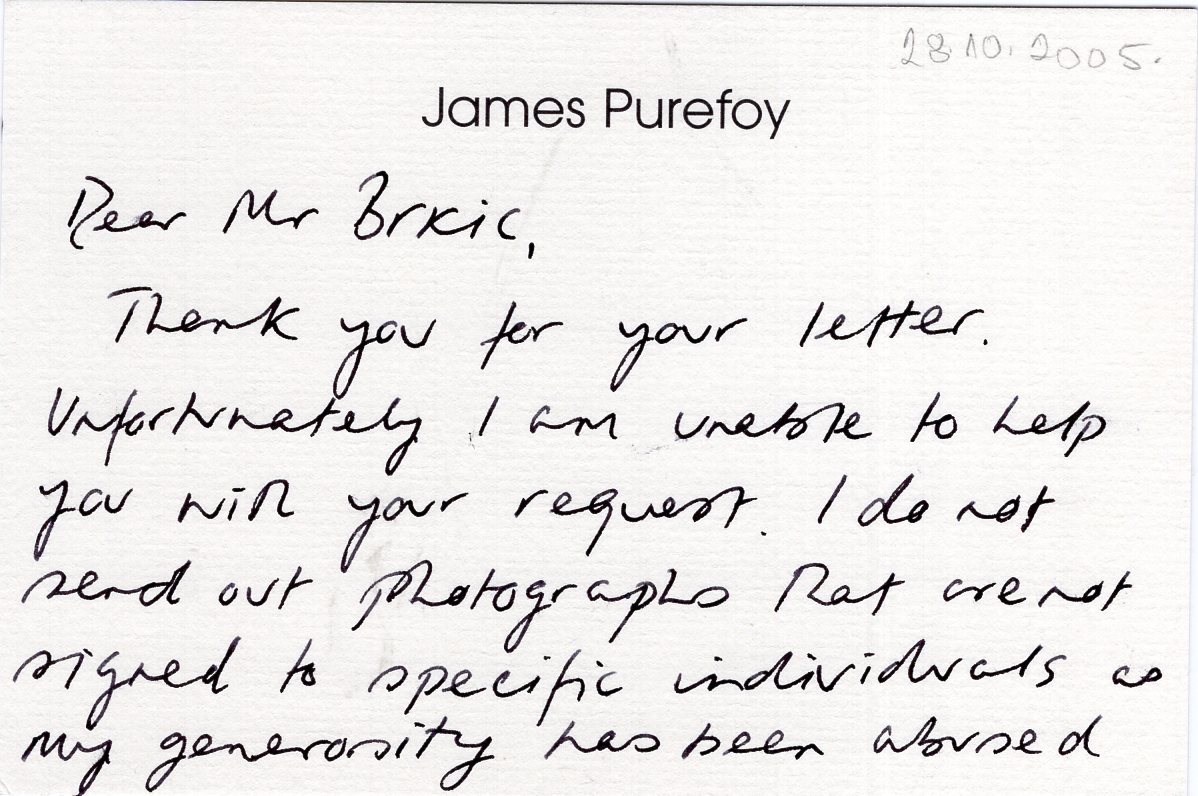 28.10.2005.
James Purefoy
Dear Mr Brkic,
Thank you for your letter.
Unfortunately I am unable to help
you with your request. I do not
send out photographs that are not
signed to specific individuals as
my generosity has been abused